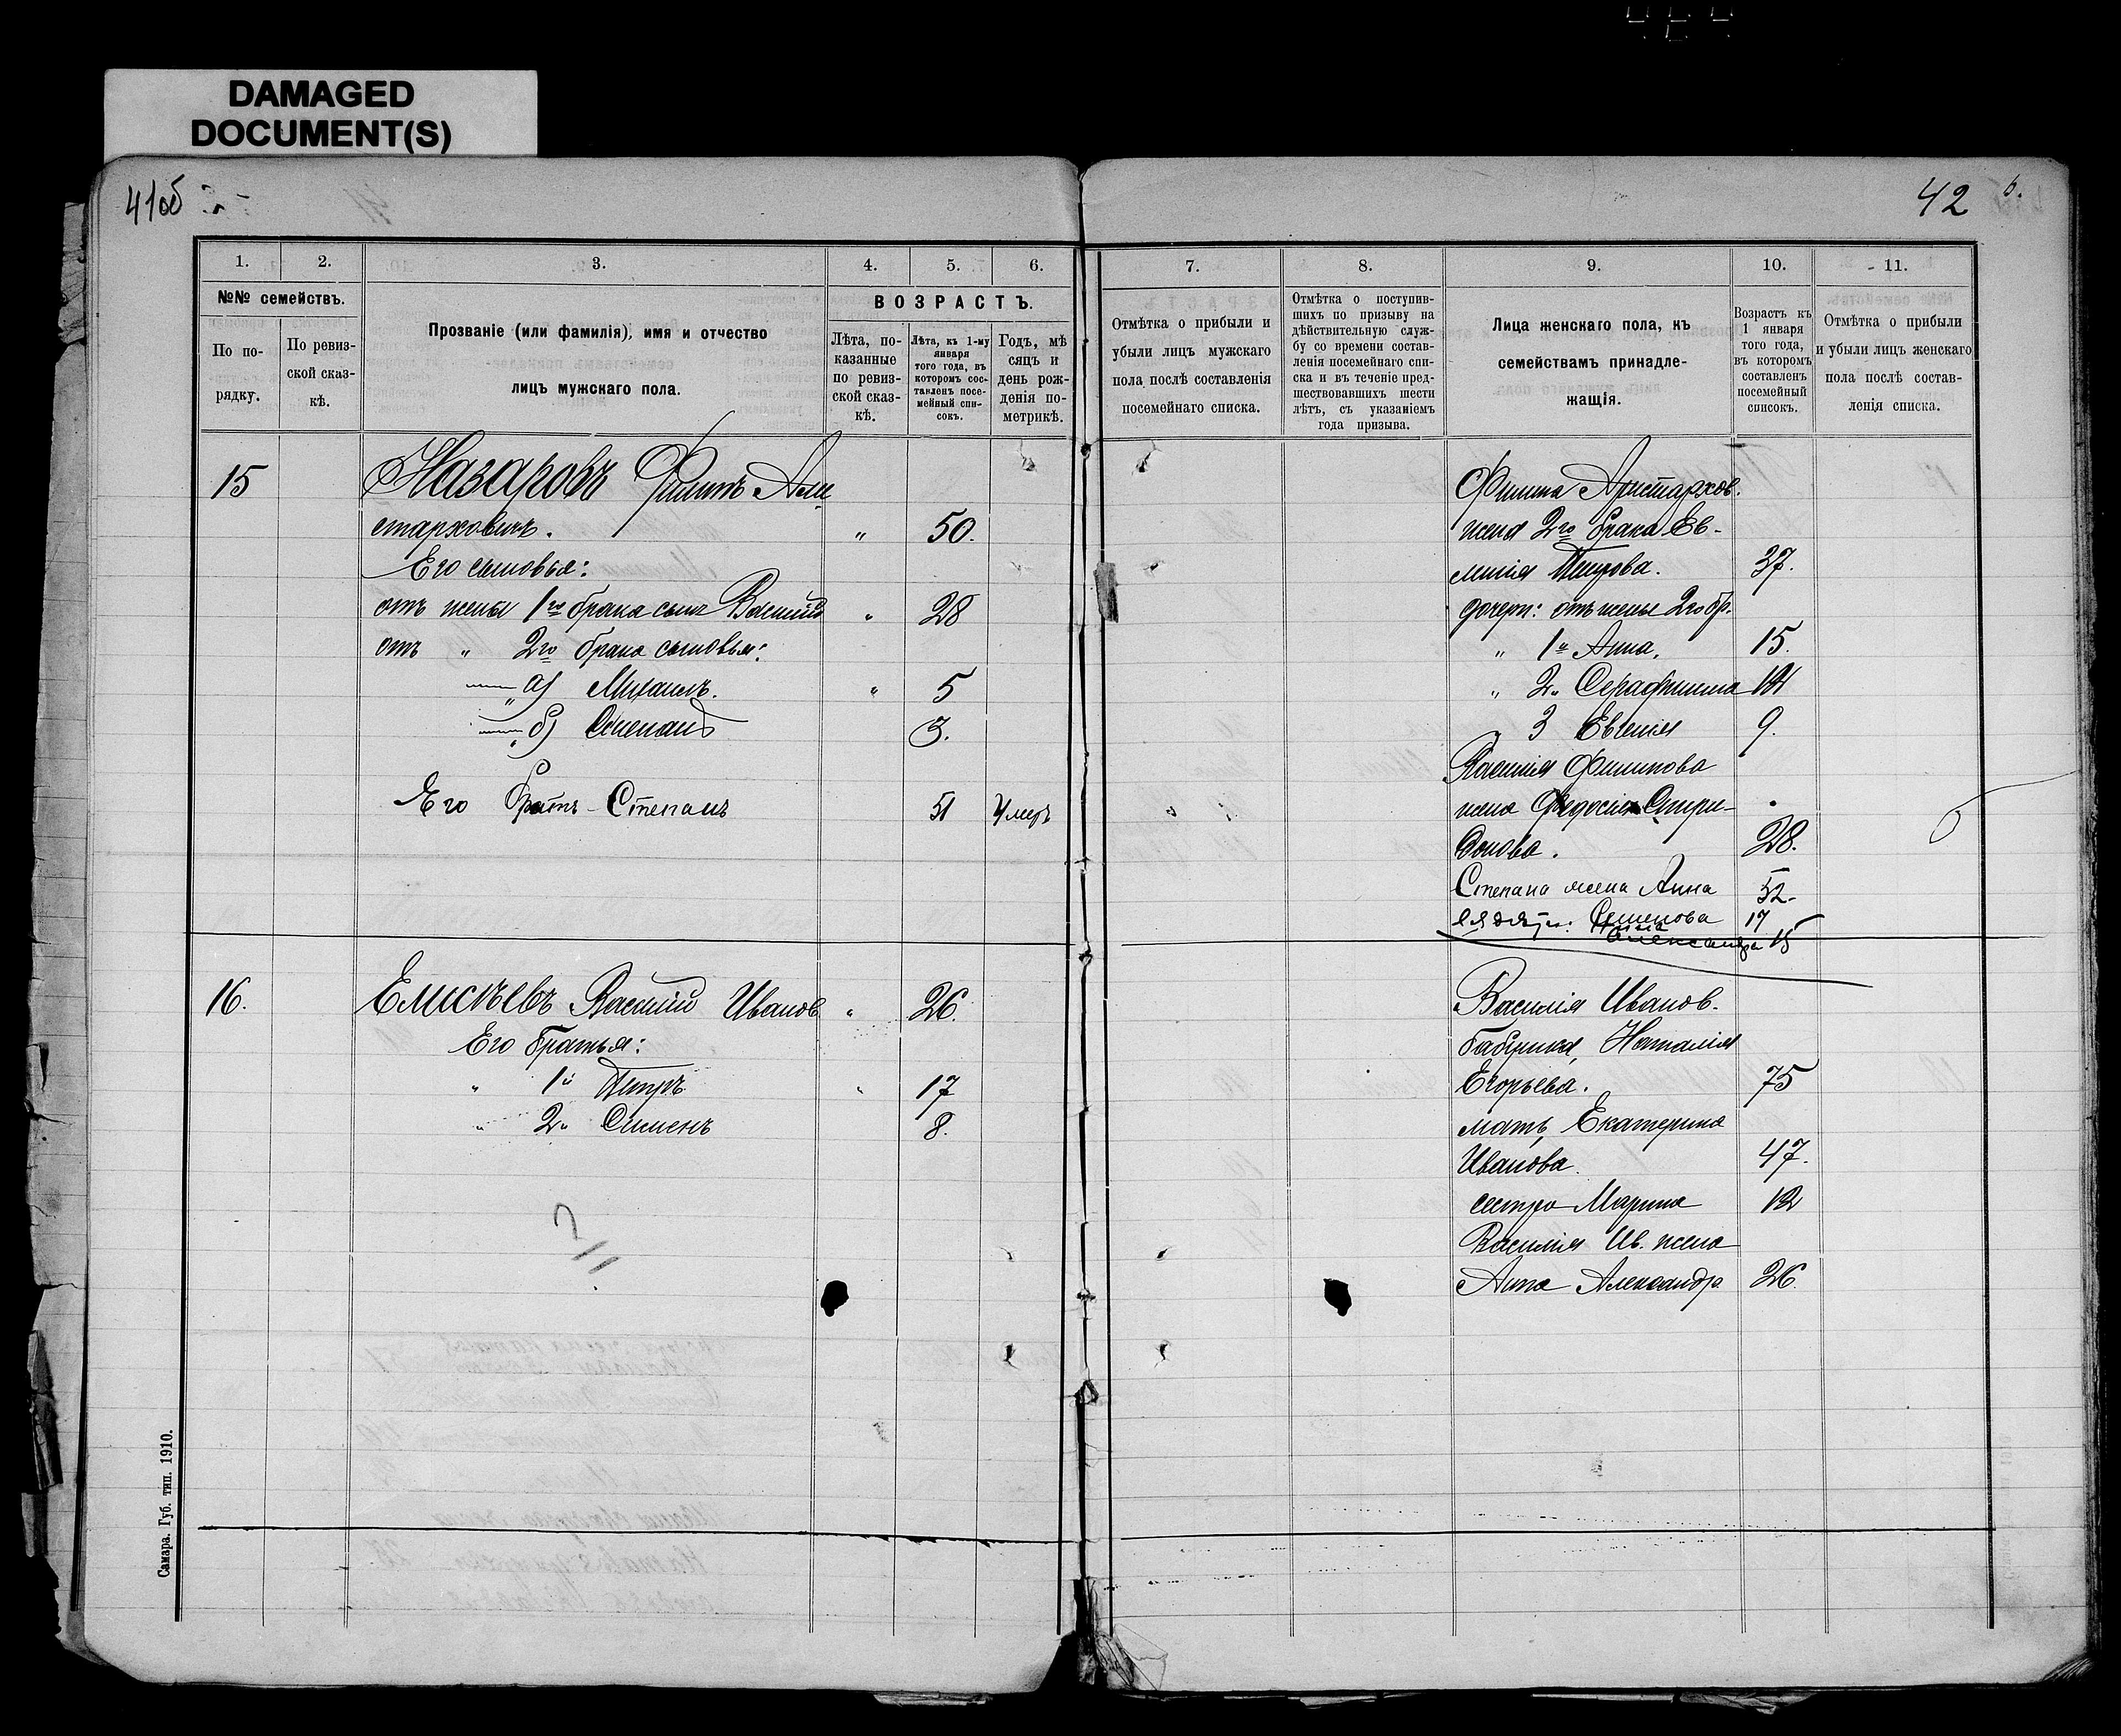 DAMAGED
DOCUMENT(S)
41об
42
1.
2.
3.
4.
5.
6.
7.
8.
9.
10.
11.
№№ семействъ.
По по-
рядку.
По ревиз-
ской сказ-
кѣ.
Прозваніе (или фамилія), имя и отчество
лицъ мужскаго пола.
ВОЗРАСТЪ.
Лѣта, по-
казанные
по ревиз-
ской сказ-
кѣ.
Лѣта, къ 1-му
января
того года, въ
которомъ сос-
тавленъ посе-
мейный спи-
сокъ.
Годъ, мѣ
сяцъ и
день рож-
денія по-
метрикѣ.
Отмѣтка о прибыли и
убыли лицъ мужскаго
пола послѣ составленія
посемейнаго списка.
Отмѣтка о поступив-
шихъ по призыву на
дѣйствительную служ-
бу со времени состав-
ленія посемейнаго спи-
ска и въ теченіе пред-
шествовавшихъ шести
лѣтъ, съ указаніемъ
года призыва.
Лица женскаго пола, къ
семействамъ принадле-
жащія.
Возрастъ къ
1 января
того года,
въ которомъ
составленъ
посемейный
списокъ.
Отмѣтка о прибыли
и убыли лицъ женскаго
пола послѣ состав-
ленія списка.
15 Назаровъ Филипъ Ари
старховичъ. " 50.
Его сыновья:
отъ жены 1го брака сынъ Василій " 28
отъ " 2го брака сыновья:
" а) Михаилъ. " 5
" б) Степанъ 3.
Его братъ - Степанъ 51 Умеръ
Филипа Аристархов.
жена 2го брака Ев-
Петрова. 37.
дочери: отъ жены 2го бр.
" 1я Анна, 15.
" 2я Серафима
" 3 Евгенія 9.
Василія Филипова
жена Федосія Спири-
донова. 28.
Степана жена Анна 52.
Семенова 17
Александра 15
16. Елисѣевъ Василій Иванов. " 26.
Его братья:
" 1й Петръ " 17
" 2й Симеонъ 8.
Василія Иванов.
бабушка, Наталія
Егорьева. 75
мать, Екатерина
Иванова. 47.
сестра Марина 12
Василія Ив. жена
Анна Александр 26.
Самара. Губ. тип. 1910.